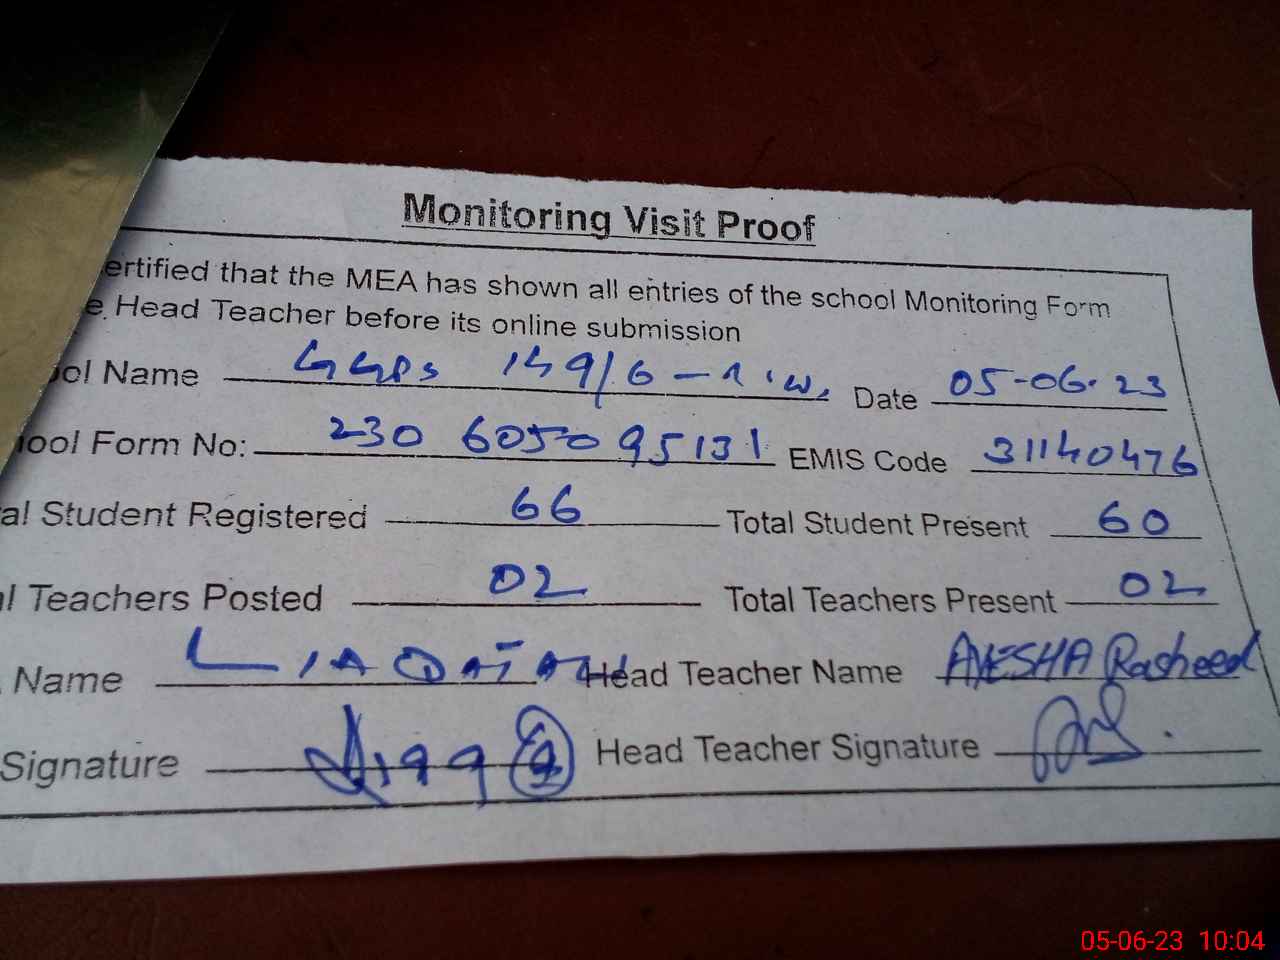 Monitoring Visit Proof
ertified that the MEA has shown all entries of the school Monitoring Form
e Head Teacher before its online submission
ol Name GGPS 149/6-R Date 05-06-23
ool Form No: 230 605095131 EMIS Code 31140476
al Student Registered 66 Total Student Present 60
l Teachers Posted 02 Total Teachers Present 02
Name Head Teacher Name AYESHA Rasheed
Signature Head Teacher Signature
05-06-23 10:04